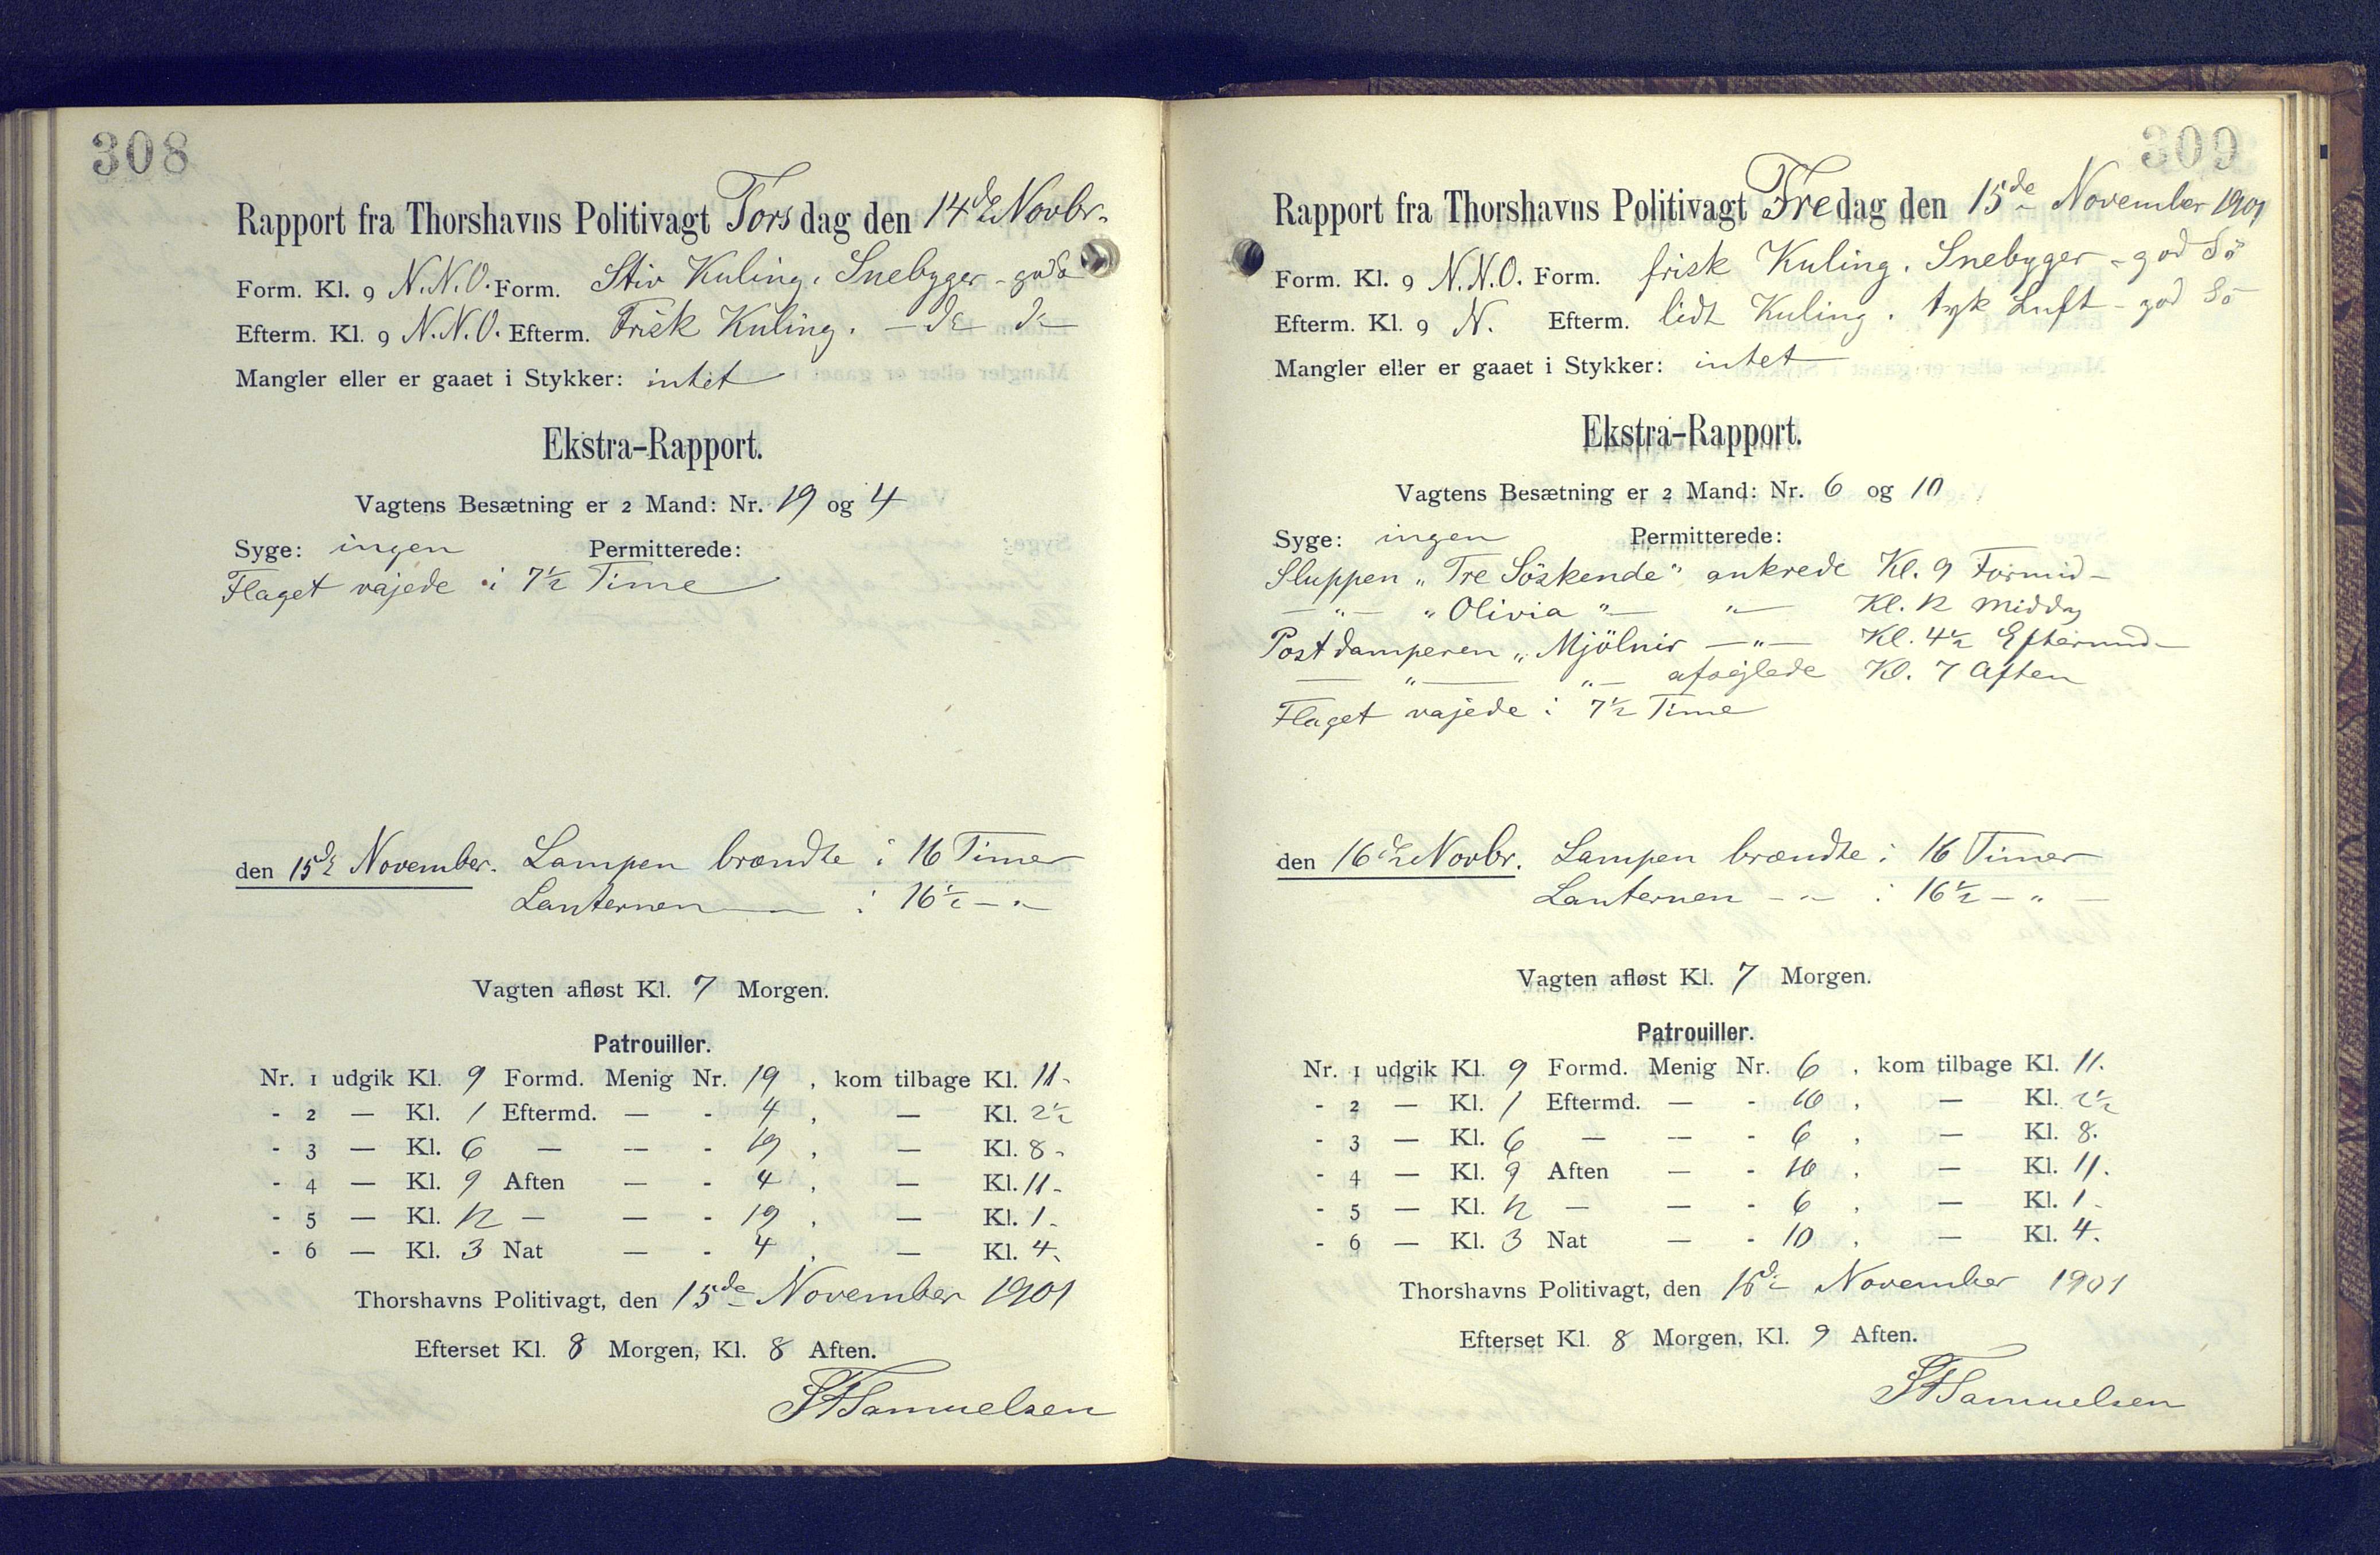 308
Rapport fra Thorshavns Politivagt Torsdag den 14de Novbr.
Form. Kl. 9 N.N.O. Form. Stiv Kuling. Snebyger - god Sö
Efterm. Kl. 9 N.N.O. Efterm. Frisk Kuling. — de — de —
Mangler eller er gaaet i Stykker: intet
Ekstra-Rapport.
Vagtens Besætning er 2 Mand: Nr. 19 og 4
Syge: ingen Permitterede:
Flaget vajede i 7½ Time
den 15de November. Lampen brændte i 16 Timer
Lanternen — " — i 16½ — " —
Vagten afløst Kl. 7 Morgen.
Patrouiller.
Nr. 1 udgik Kl. 9 Formd. Menig Nr. 19, kom tilbage Kl. 11.
- 2 — Kl. 1 Eftermd. — - 4, — Kl. 2½
- 3 — Kl. 6 — — - 19, — Kl. 8.
- 4 — Kl. 9 Aften — - 4, — Kl. 11.
- 5 — Kl. 12 — — - 19, — Kl. 1.
- 6 — Kl. 3 Nat — - 4, — Kl. 4.
Thorshavns Politivagt, den 15de November 1901
Efterset Kl. 8 Morgen, Kl. 8 Aften.
Samuelsen
309
Rapport fra Thorshavns Politivagt Fredag den 15de November 1901
Form. Kl. 9 N.N.O. Form. frisk Kuling. Snebyger - god Sö
Efterm. Kl. 9 N. Efterm. lidt Kuling. tyk Luft - god Sö
Mangler eller er gaaet i Stykker: intet
Ekstra-Rapport.
Vagtens Besætning er 2 Mand: Nr. 6 og 10
Syge: ingen Permitterede:
Sluppen „Tre Söskende" ankrede Kl. 9 Formid-
— " — „Olivia" — " — Kl. 12 Middag
Postdamperen „Mjölnir — " — Kl. 4½ Eftermid-
— " — " — afsejlede Kl. 7 Aften
Flaget vajede i 7½ Time
den 16de Novbr. Lampen brændte i 16 Timer
Lanternen — " — i 16½ — " —
Vagten afløst Kl. 7 Morgen.
Patrouiller.
Nr. 1 udgik Kl. 9 Formd. Menig Nr. 6, kom tilbage Kl. 11.
- 2 — Kl. 1 Eftermd. — - 10, — Kl. 2½
- 3 — Kl. 6 — — - 6, — Kl. 8.
- 4 — Kl. 9 Aften — - 10, — Kl. 11.
- 5 — Kl. 12 — — - 6, — Kl. 1.
- 6 — Kl. 3 Nat — - 10, — Kl. 4.
Thorshavns Politivagt, den 16de November 1901
Efterset Kl. 8 Morgen, Kl. 9 Aften.
Samuelsen